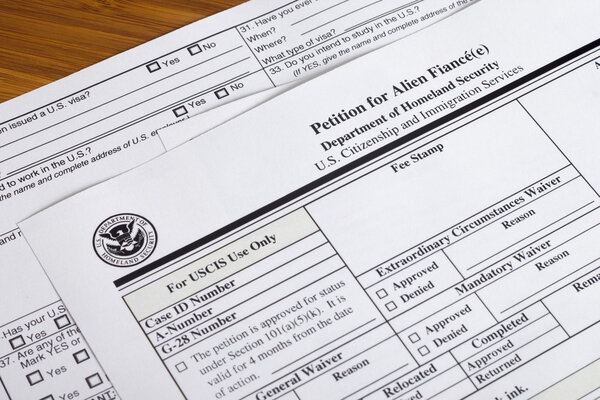 31. Have you ever
When?
Where?
What type of visa?
33. Do you intend to study in the U.S.?
(If YES, give the name and complete address of the
Yes No
en issued a U.S. visa?
Yes No
d to work in the U.S.?
the name and complete address of U.S. employer)
Has your U.S.
Yes
37. Are any of the
Mark YES or
Yes
Yes
Petition for Alien Fiancé(e)
Department of Homeland Security
U.S. Citizenship and Immigration Services
U.S. DEPARTMENT OF HOMELAND SECURITY
For USCIS Use Only
Fee Stamp
Case ID Number
A-Number
G-28 Number
The petition is approved for status
under Section 101(a)(5)(k). It is
valid for 4 months from the date
of action.
Extraordinary Circumstances Waiver
Approved Reason
Denied
Mandatory Waiver
Approved Reason
Denied
General Waiver
Reason
Relocated
Completed
Approved
Returned
Rema
ink.